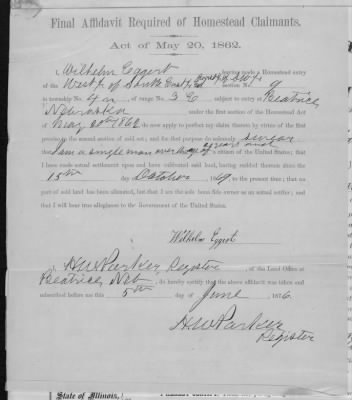 Final Affidavit Required of Homestead Claimants.
Act of May 20, 1862.
I, Wilhelm Eggert having made a Homestead entry
of the West ½ of South East ¼ East ½ of SW ¼ section No. 9
in township No. 4 n of range No. 3 E subject to entry at Beatrice
Nebraska under the first section of the Homestead Act
of May 20th 1862 do now apply to perfect my claim thereto by virtue of the first
proviso to the second section of said act; and for that purpose do solemnly swear
that I am a single man over the age of years and a citizen of the United States; that
I have made actual settlement upon and have cultivated said land, having resided thereon since the
15th day October 1869, to the present time; that no
part of said land has been alienated, but that I am the sole bona fide owner as an actual settler; and
that I will bear true allegiance to the Government of the United States.
Wilhelm Eggert
I, H.W. Parker, Register of the Land Office at
Beatrice, Neb do hereby certify that the above affidavit was taken and
subscribed before me this 5th day of June 1876.
H.W. Parker
Register
State of Illinois,